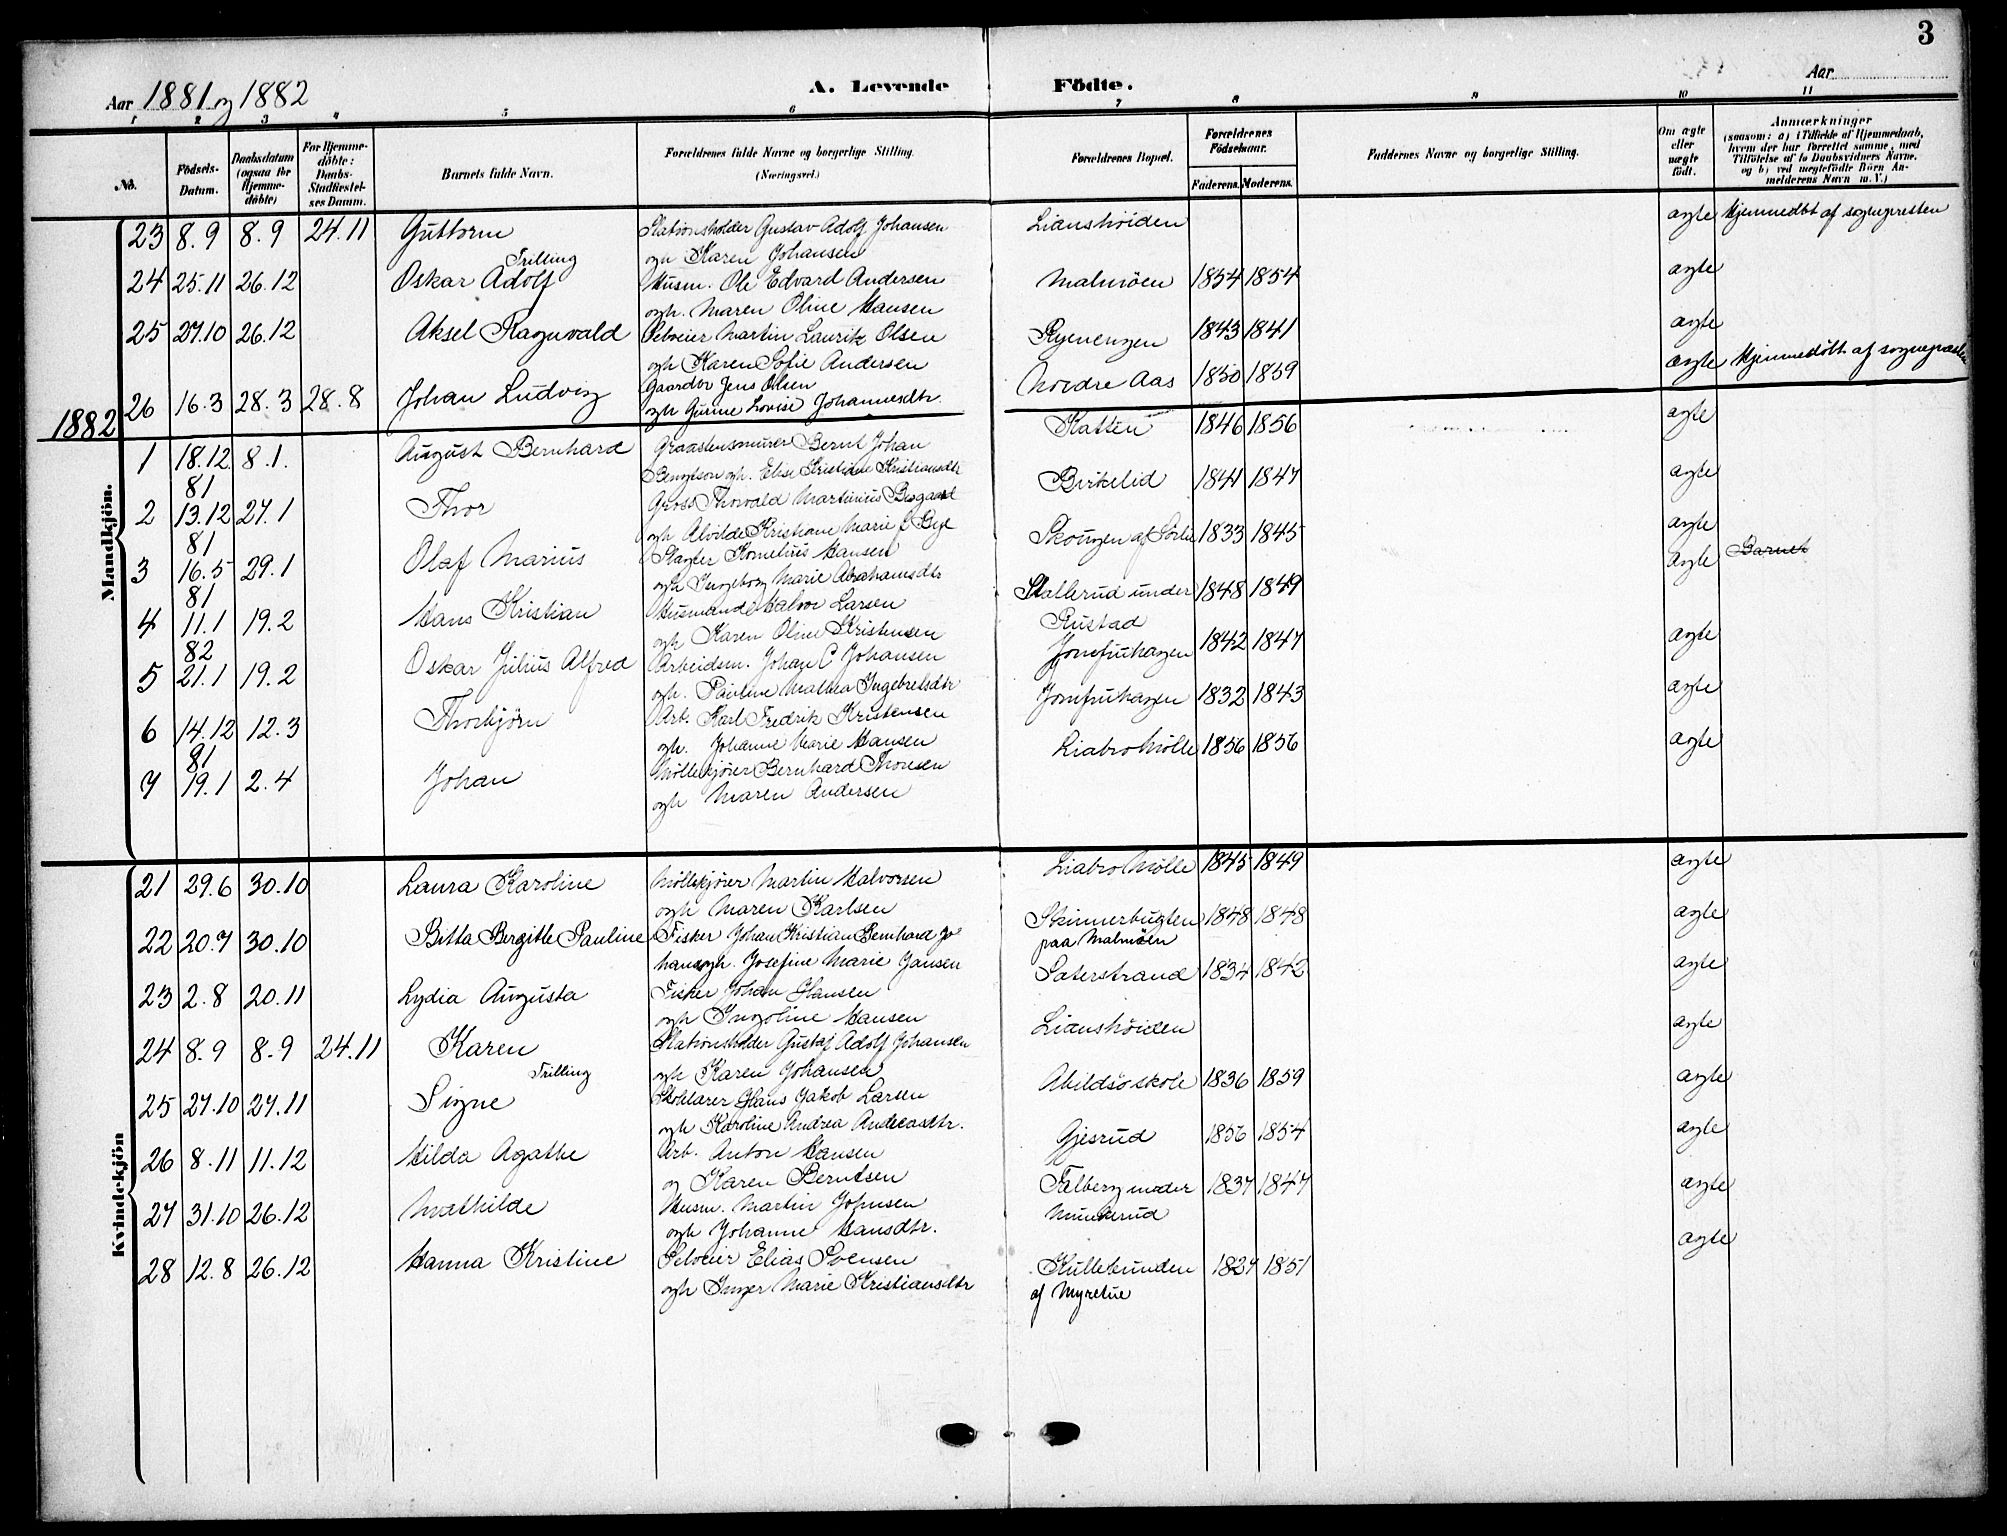 3
Aar 1881 og 1882
A. Levende Födte.
Aar
1 2 3 4 5 6 7 8 9 10 11
No.
Födsels-Datum.
Daabsdatum (ogsaa for Hjemme-döbte)
For Hjemme-döbte: Daabs-Stadfæstel-ses Datum.
Barnets fulde Navn.
Forældrenes fulde Navne og borgerlige Stilling. (Næringsvei.)
Forældrenes Bopæl.
Forældrenes Födselsaar.
Faderens. Moderens.
Faddernes Navne og borgerlige Stilling.
Om ægte eller uægte født.
Anmærkninger
(saasom: a) i Tilfælde af Hjemmedaab, hvem der har forrettet samme, med Tilföielse af to Daabsvidners Navne, og b) ved uægtefödte Börn An-melderens Navn m. V.)
Mandkjön.
23 8.9 8.9 24.11 Guttorm Stationsholder Gustav Adolf Johansen Lianshöiden ægte Hjemmedbt af sognepresten
Trilling ogh Karen Johansen
24 25.11 26.12 Oskar Adolf Husm. Ole Edvard Andersen Malmöen 1854 1854 ægte
ogh. Maren Oline Hansen
25 27.10 26.12 Aksel Ragnvald Selveier Martin Laurik Olsen Ryenengen 1843 1841 ægte
ogh Karen Sofie Andersen
26 16.3 28.3 28.8 Johan Ludvig Gaardbr Jens Olsen Nordre Aas 1850 1859 ægte Hjemmedöbt af sognepresten
ogh Gunne Lovise Johannesdtr.
1882
1 18.12 81 8.1. August Bernhard Graastensmurer Bernt Johan Katten 1846 1856 ægte
Bengtson ogh. Elise Kristiane Kristiansdtr
2 13.12 81 27.1 Thor Gross Thorvald Martinius Bogaard Birkelid 1841 1847 ægte
ogh Alvilde Kristiane Marie f Bye
3 16.5 81 29.1 Olaf Marius Slagter Kornelius Hansen Skougen af 1833 1845 ægte
ogh Ingeborg Marie Abrahamsdtr
4 11.1 82 19.2 Hans Kristian Husmand Halvor Larsen Stallerud under Rustad 1848 1849 ægte Barnet
ogh Karen Oline Kristensen
5 21.1 19.2 Oskar Julius Alfred Arbeidsm. Johan C Johansen Jomfruhagen 1842 1847 ægte
ogh. Pauline Mathea Ingebretsdtr
6 14.12 81 12.3 Thorbjörn Arb. Karl Fredrik Kristensen Jomfruhagen 1832 1843 ægte
gh. Johanne Marie Hansen
7 19.1 2.4 Johan Möllekjörer Bernhard Thorsen Liabro Mölle 1856 1856 ægte
ogh Maren Andersen
Kvindekjön
21 29.6 30.10 Laura Karoline Möllekjörer Martin Halvorsen Liabro Mölle 1845 1849 ægte
ogh Maren Karlsen
22 20.7 30.10 Bitta Bergitte Pauline Fisker Johan Kristian Bernhard Jo Skinnerbugten 1848 1848 ægte
hans ogh. Josefine Marie Jansen paa Malmöen
23 2.8 20.11 Lydia Augusta Fisker Johan Hansen Saterstrand 1834 1842 ægte
ogh Ingoline Hansen
24 8.9 8.9 24.11 Karen Stationsholder Gustaf Adolf Johansen Lianshöiden ægte
Trilling ogh Karen Johansen
25 27.10 27.11 Signe Skolelærer Hans Jakob Larsen Abildsö skole 1836 1859 ægte
ogh Karoline Andrea Andreasdtr.
26 8.11 11.12 Hilda Agathe Arb. Anton Hansen Gjesrud 1856 1854 ægte
og Karen Berntsen
27 31.10 26.12 Mathilde Husm. Martin Johnsen Talberg under 1837 1847 ægte
ogh Johanne Hansdtr. Munkerud
28 12.8 26.12 Hanna Kristine Selveier Elias Svensen Kullebunden 1827 1851 ægte
ogh Inger Marie Kristiansdtr af Myretue